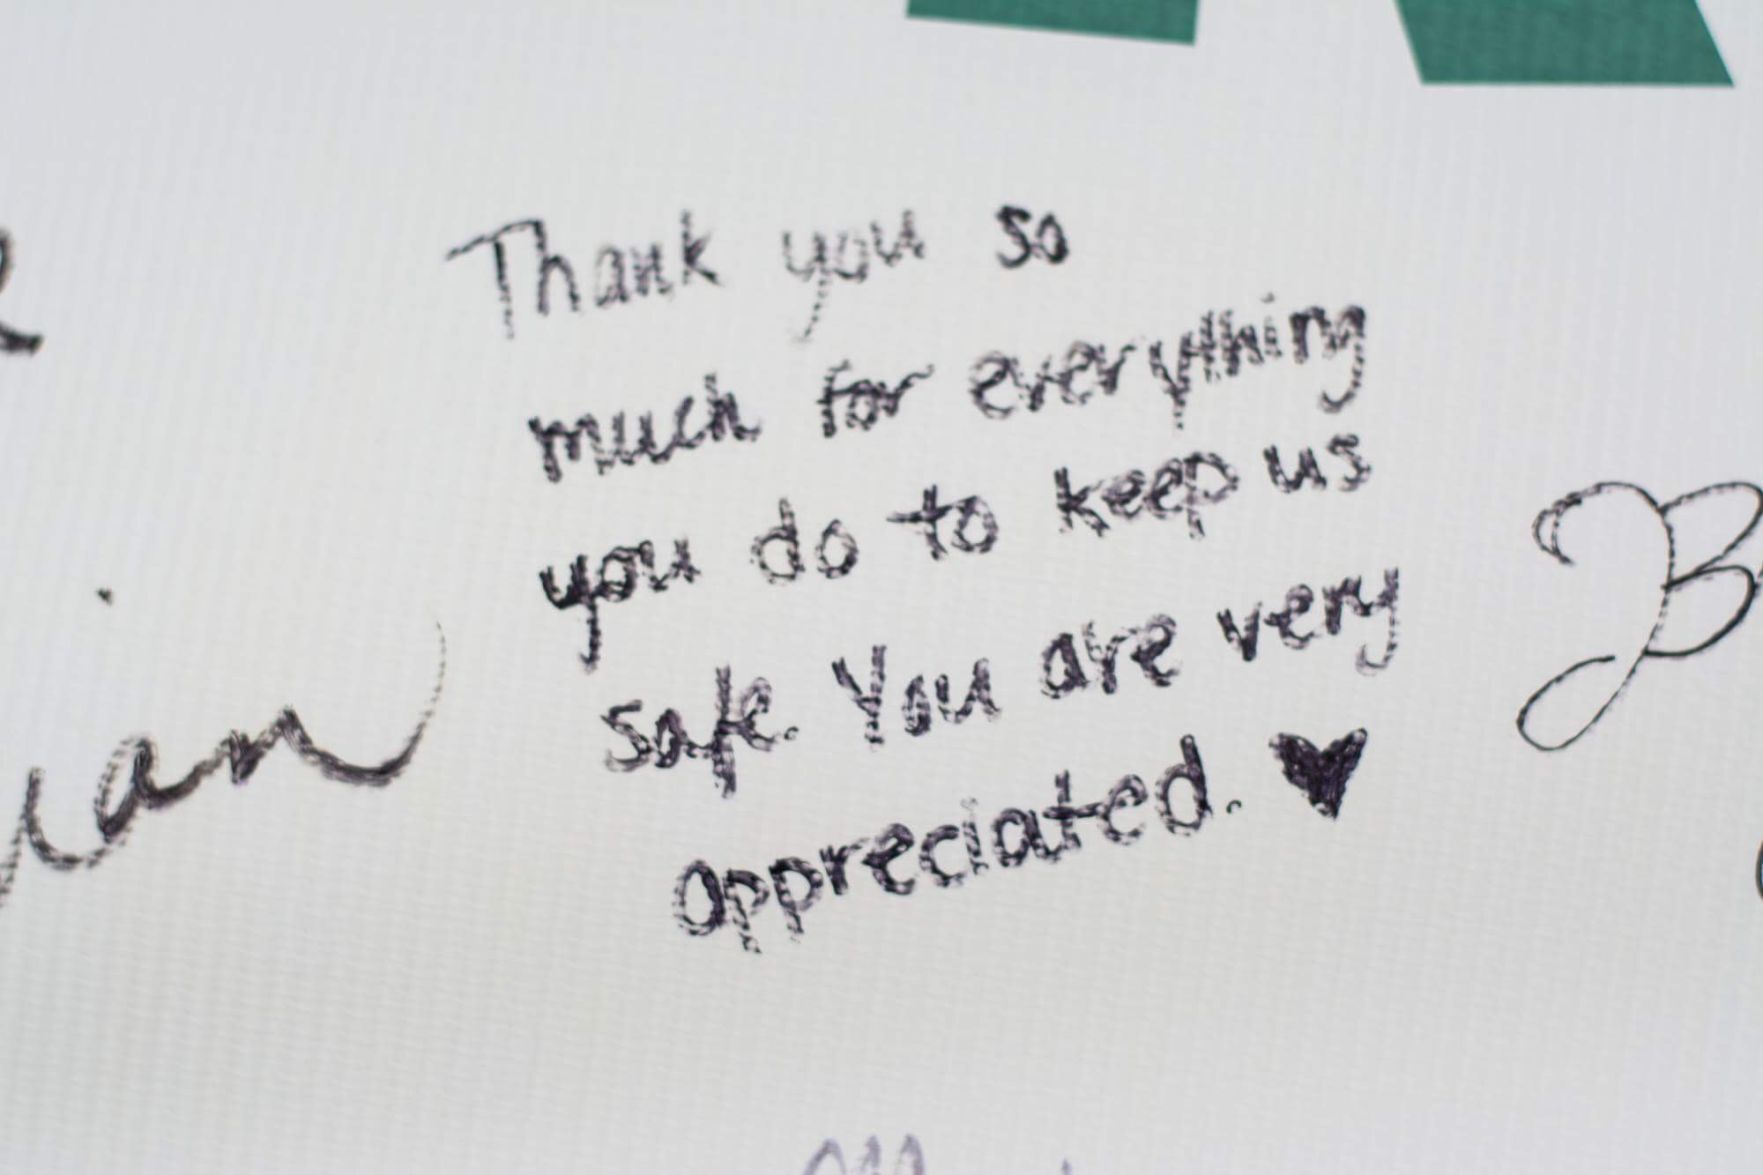 Thank you so
much for everything
you do to keep us
safe. You are very
appreciated. ♥